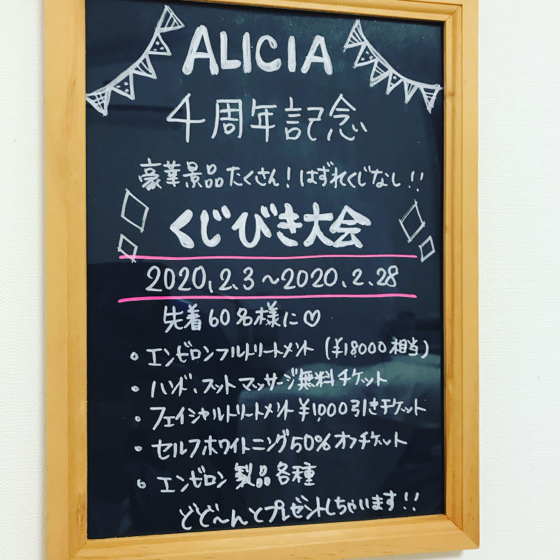 ALICIA
4周年記念
豪華景品たくさん!はずれくじなし!!
くじびき大会
2020.2.3〜2020.2.28
先着60名様に♡
• エンビロンフルトリートメント (¥18000相当)
• ハンド、フットマッサージ無料チケット
• フェイシャルトリートメント¥1,000引きチケット
• セルフホワイトニング50%オフチケット
• エンビロン製品各種
どど〜んとプレゼントしちゃいます!!